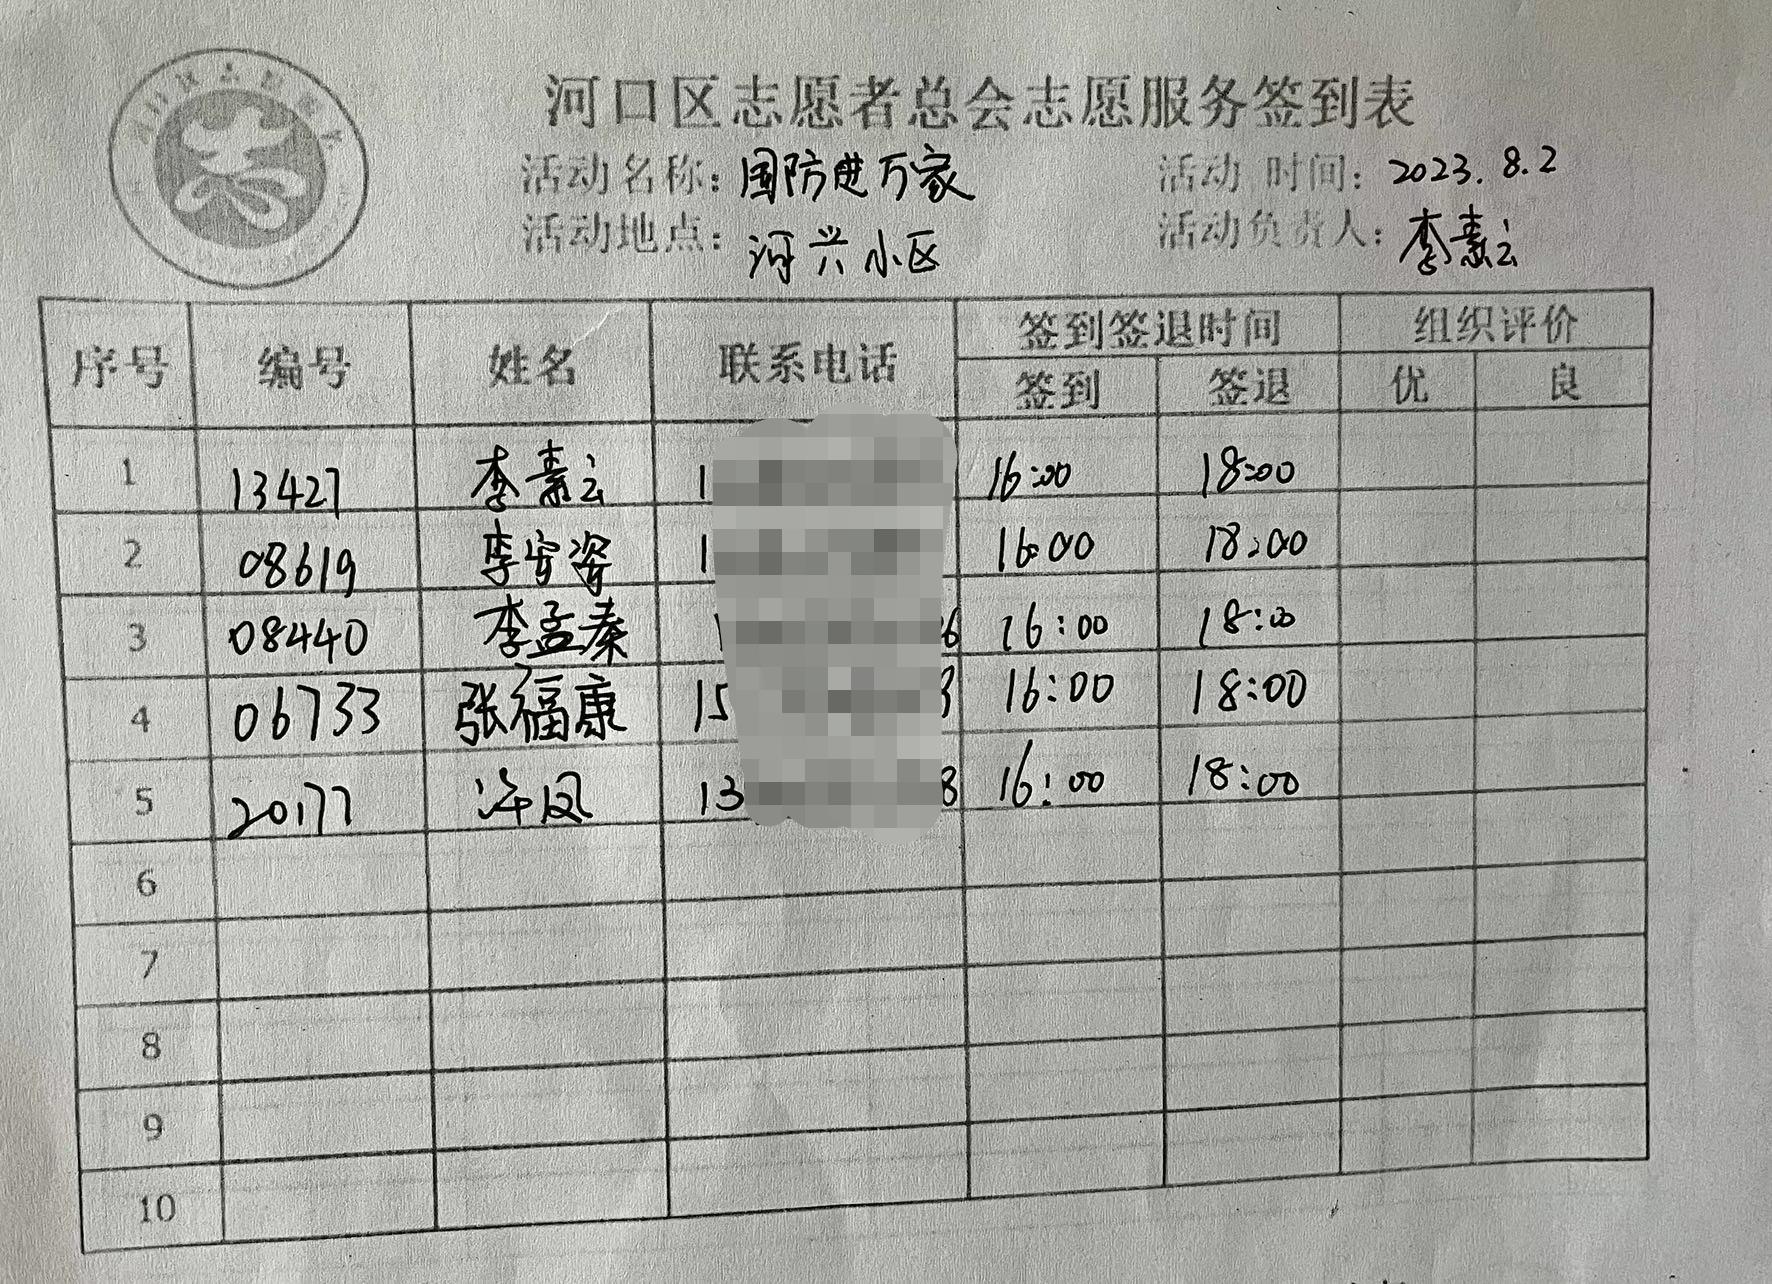 河口区志愿者总会志愿服务签到表
活动名称：国防进万家 活动时间：2023.8.2
活动地点：河兴小区 活动负责人：李素云
序号 编号 姓名 联系电话 签到签退时间 组织评价
签到 签退 优 良
1 13427 李素云 1 16:00 18:00
2 08619 李安姿 1 16:00 18:00
3 08440 李孟秦 1 6 16:00 18:00
4 06733 张福康 15 3 16:00 18:00
5 20177 许凤 13 8 16:00 18:00
6
7
8
9
10